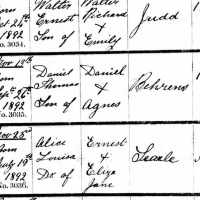 Walter Walter
Oct 24th Ernest Richard Judd
1892 Son of &
No. 3034. Emily
Nov 18th
Daniel Daniel
Thomas & Behrens
1892 Son of Agnes
No. 3035.
Nov 25th
Alice Ernest
July 19th Louisa &
1892 Dr of Eliza
No. 3036. Jane